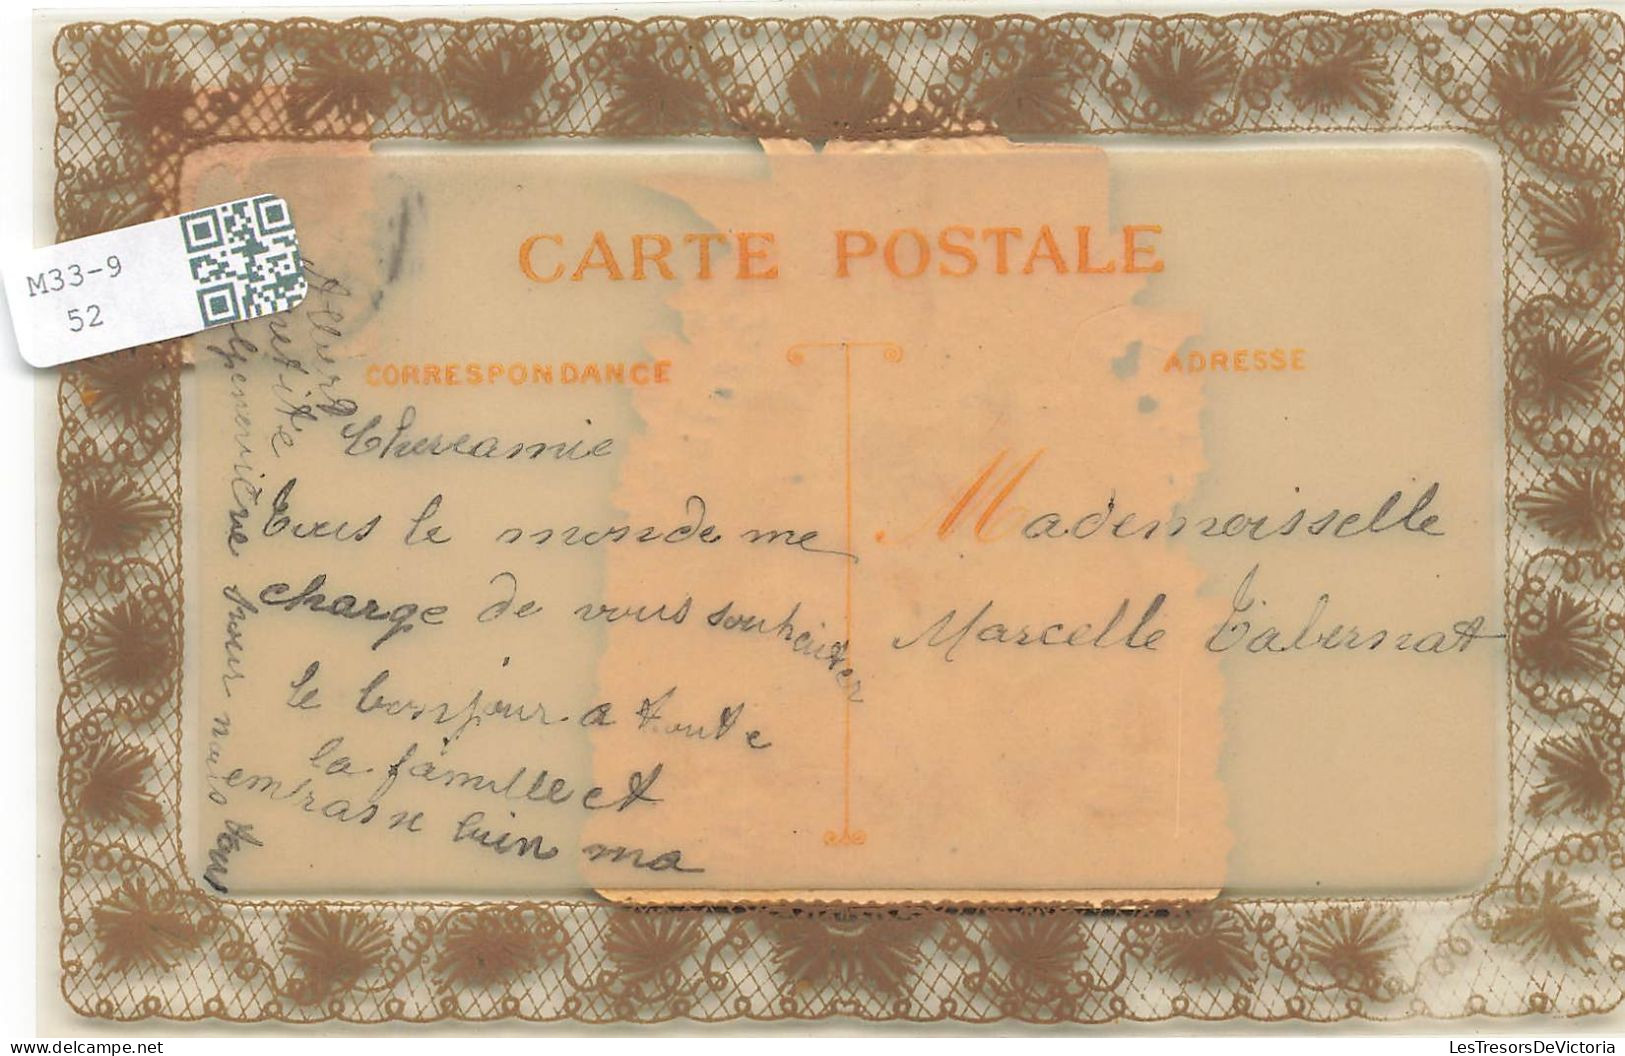 M33-9
52
CARTE POSTALE
CORRESPONDANCE
ADRESSE
Chereamie
Tous le monde me
charge de vous souhaiter
le bonjour a toute
la famille et
embrasse bien ma
petite
pour nous tous
Mademoisselle
Marcelle Tabernat
LesTresorsDeVictoria
www.delcampe.net